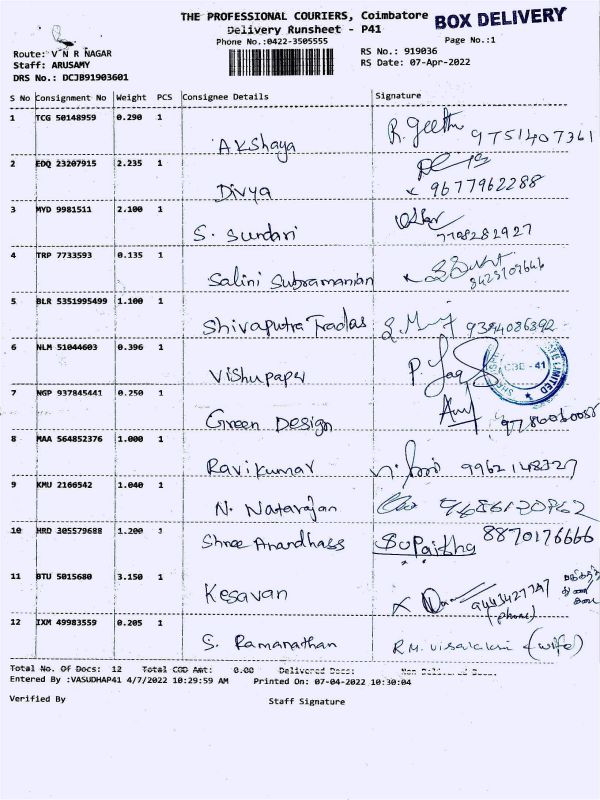 THE PROFESSIONAL COURIERS, Coimbatore
BOX DELIVERY
Delivery Runsheet - P41
Phone No.:0422-3505555
Page No.:1
Route: V N R NAGAR
RS No.: 919036
Staff: ARUSAMY
RS Date: 07-Apr-2022
DRS No.: DCJB91903601
S No Consignment No Weight PCS Consignee Details Signature
1 TCG 50148959 0.290 1
Akshaya R. Geetha 9751407361
2 EDQ 23207915 2.235 1
Divya x 9677962288
3 MYD 9981511 2.100 1
S. Sundari 7708282927
4 TRP 7733593 0.135 1
Salini Subramanian x
5 BLR 5351995499 1.100 1
Shivaputra Tradas 9384086392
6 NLM 51044603 0.396 1
Vishupaper P.
CBE - 41
7 NGP 937845441 0.250 1
Green Design
8 MAA 564852376 1.000 1
Ravikumar 9962148327
9 KMU 2166542 1.040 1
N. Natarajan
10 HRD 305579688 1.200
Shree Anandhass 8870176666
11 BTU 5015680 3.150 1
Kesavan x 9443427747
(phone)
12 IXM 49983559 0.205 1
S. Ramanathan R.M. Visalakshi (wife)
Total No. Of Docs: 12 Total COD Amt: 0.00 Delivered Docs:
Entered By :VASUDHAP41 4/7/2022 10:29:59 AM Printed On: 07-04-2022 10:30:04
Verified By Staff Signature